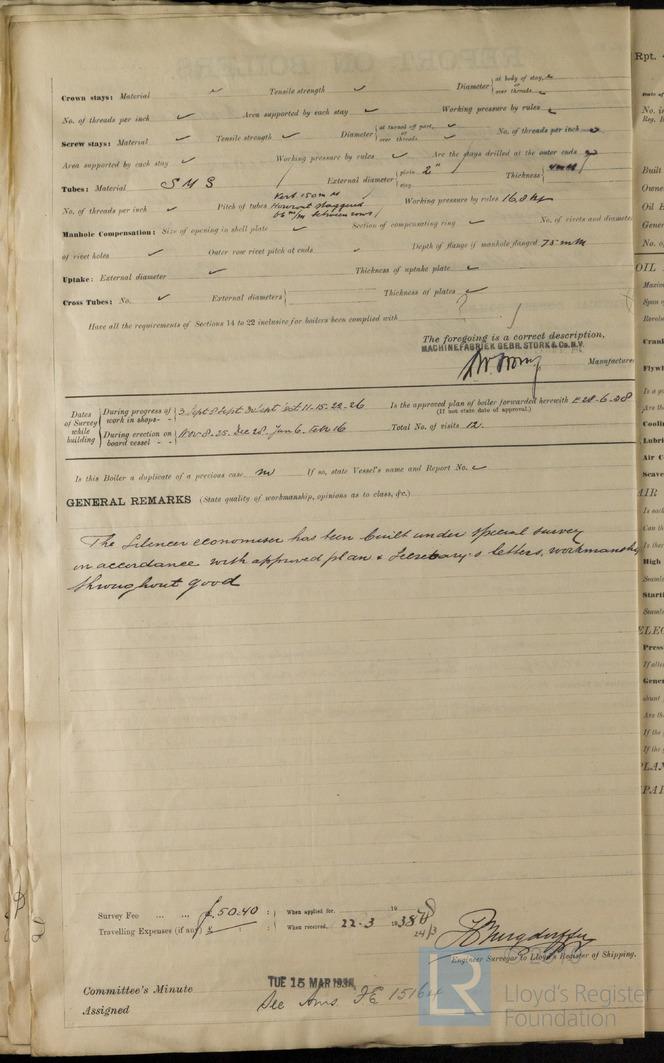 Crown stays: Material ✓ Tensile strength ✓ Diameter { at body of stay, or over threads
No. of threads per inch ✓ Area supported by each stay ✓ Working pressure by rules ✓
Screw stays: Material ✓ Tensile strength ✓ Diameter { at turned off part, or over threads ✓ No. of threads per inch ✓
Area supported by each stay ✓ Working pressure by rules ✓ Are the stays drilled at the outer ends
Tubes: Material S M S External diameter { plain 2" stay Thickness 4 mm
No. of threads per inch ✓ Pitch of tubes Vert 150 m m Working pressure by rules 16.8 kg
Manhole Compensation: Size of opening in shell plate ✓ Section of compensating ring ✓ No. of rivets and diameter
of rivet holes ✓ Outer row rivet pitch at ends ✓ Depth of flange if manhole flanged 75 mm
Uptake: External diameter ✓ Thickness of uptake plate ✓
Cross Tubes: No. ✓ External diameters { Thickness of plates ✓
Have all the requirements of Sections 14 to 22 inclusive for boilers been complied with
The foregoing is a correct description,
MACHINEFABRIEK GEBR. STORK & Co. N.V.
Manufacturer
Dates of Survey while building { During progress of work in shops - - 3 Sept 8 Sept 30 Sept Oct 11-15-22-26 Is the approved plan of boiler forwarded herewith
(If not state date of approval.)
During erection on board vessel - - Nov 8-25 Dec 28 Jan 6 Feb 16 Total No. of visits 12.
Is this Boiler a duplicate of a previous case no If so, state Vessel's name and Report No. ✓
GENERAL REMARKS (State quality of workmanship, opinions as to class, &c.)
The Silencer economiser has been built under special survey
in accordance with approved plan & Secretary's letters, workmanship
throughout good
Survey Fee ... ... £ 50.40 : When applied for, 19
Travelling Expenses (if any) £ : When received, 22-3 1938
24/3
Engineer Surveyor to Lloyd's Register of Shipping.
Committee's Minute TUE 15 MAR 1938
Assigned See Ams FE 15164
LR Lloyd's Register
Foundation
Rpt.